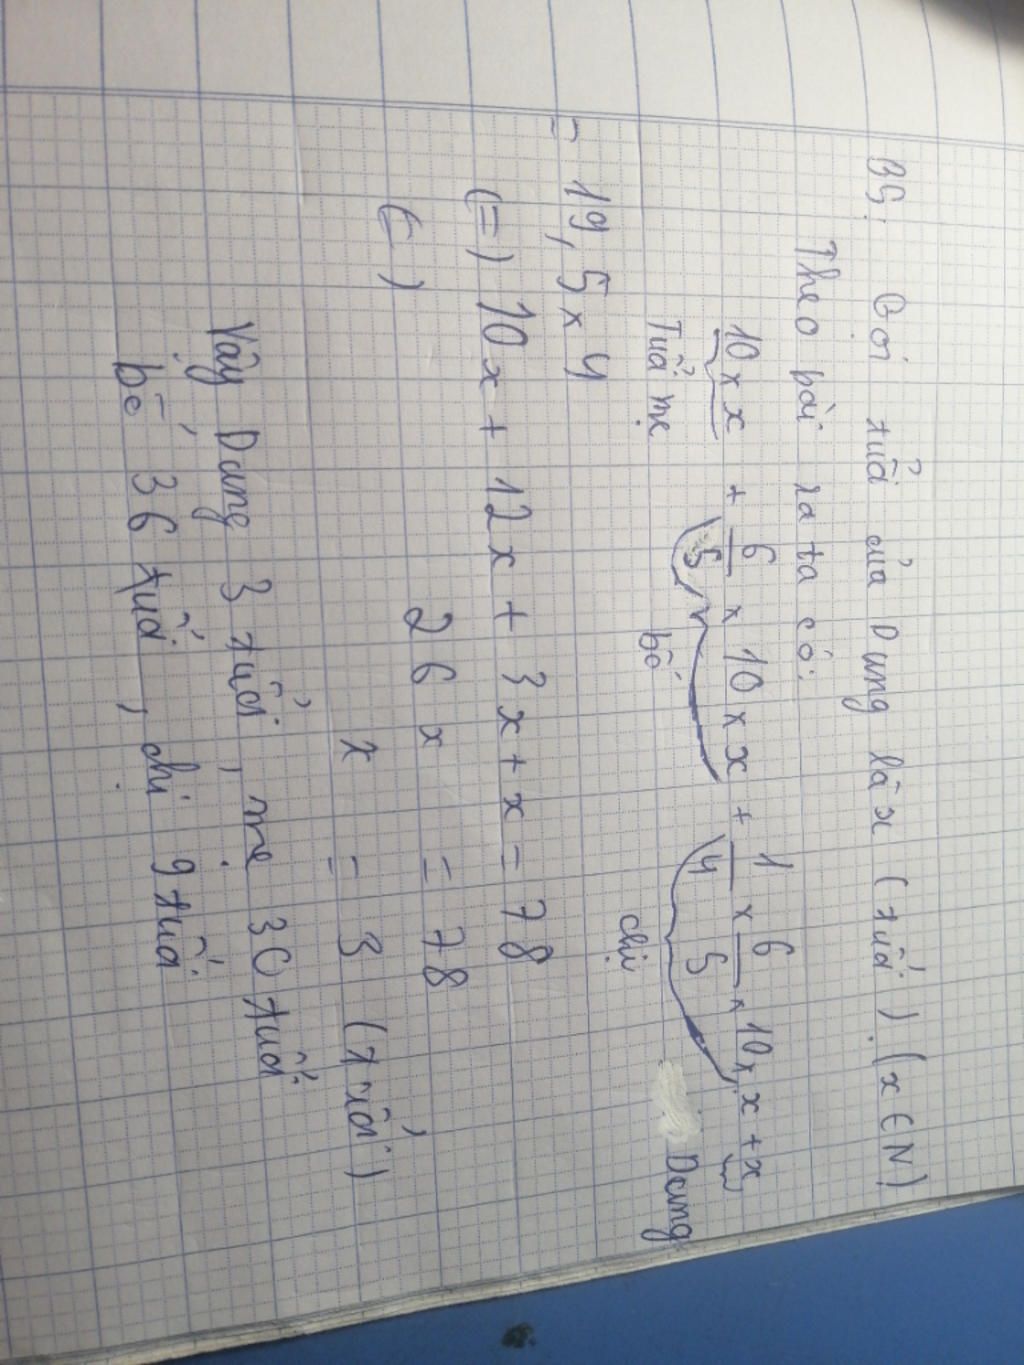 BG: Gọi tuổi của Dung là x (tuổi). (x ∈ N)
Theo bài ra ta có:
10 x x + 6/5 x 10 x x + 1/4 x 6/5 x 10 x x + x
Tuổi mẹ bố chị Dung
= 19,5 x 4
(=) 10x + 12x + 3x + x = 78
(=) 26x = 78
x = 3 (tuổi)
Vậy Dung 3 tuổi, mẹ 30 tuổi
bố 36 tuổi, chị 9 tuổi